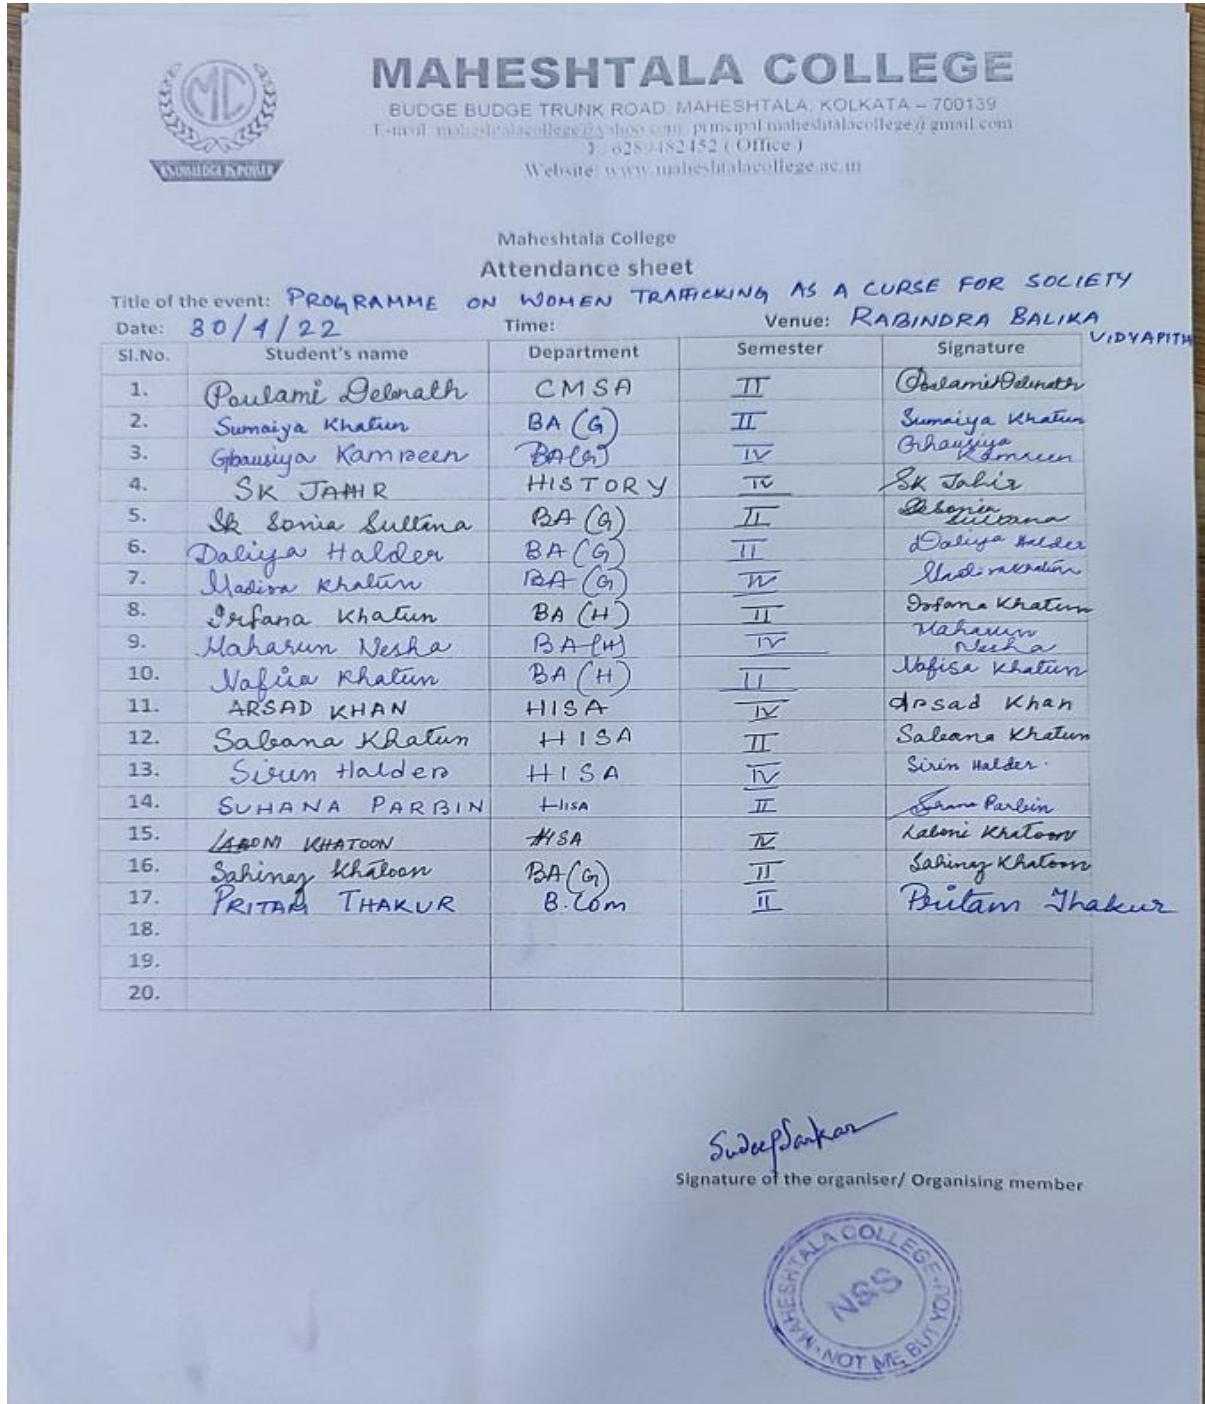 MC
KNOWLEDGE IS POWER
MAHESHTALA COLLEGE
BUDGE BUDGE TRUNK ROAD, MAHESHTALA, KOLKATA – 700139
E-mail: maheshtalacollege@yahoo.com, principal.maheshtalacollege@gmail.com
6289482452 ( Office )
Website: www.maheshtalacollege.ac.in
Maheshtala College
Attendance sheet
Title of the event: PROGRAMME ON WOMEN TRAFFICKING AS A CURSE FOR SOCIETY
Date: 30/4/22 Time: Venue: RABINDRA BALIKA VIDYAPITH
Sl.No. Student's name Department Semester Signature
1. Poulami Debnath CMSA II Poulami Debnath
2. Sumaiya Khatun BA (G) II Sumaiya Khatun
3. Ghausiya Kamreen BA(G) IV Ghausiya Kamreen
4. SK JAHIR HISTORY IV SK Jahir
5. Sk Sonia Sultana BA (G) II Sk Sonia Sultana
6. Daliya Halder BA (G) II Daliya Halder
7. Madira Khatun BA (G) IV Madira Khatun
8. Irfana Khatun BA (H) II Irfana Khatun
9. Maharun Nesha BA (H) IV Maharun Nesha
10. Nafisa Khatun BA (H) II Nafisa Khatun
11. ARSAD KHAN HISA IV Arsad Khan
12. Sabana Khatun HISA II Sabana Khatun
13. Sirin Halder HISA IV Sirin Halder.
14. SUHANA PARBIN HISA II Parbin
15. LABONI KHATOON HISA IV Laboni Khatoon
16. Sahinaz Khatoon BA(G) II Sahinaz Khatoon
17. PRITAM THAKUR B.Com II Pritam Thakur
18.
19.
20.
Sudeep Sarkar
Signature of the organiser/ Organising member
MAHESHTALA COLLEGE
NSS
NOT ME BUT YOU